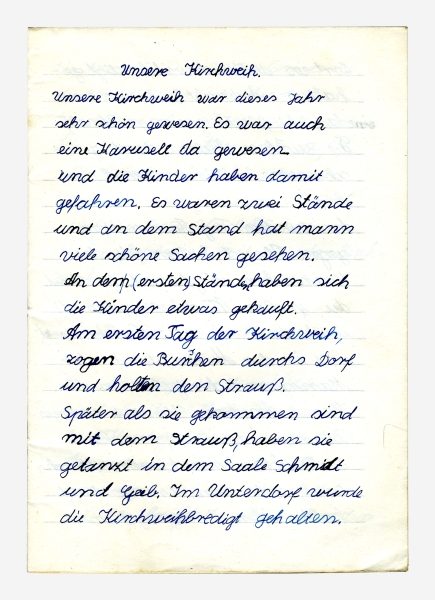 Unsere Kirchweih.
Unsere Kirchweih war dieses Jahr
sehr schön gewesen. Es war auch
eine Karusell da gewesen
und die Kinder haben damit
gefahren. Es waren zwei Stände
und an dem Stand hat mann
viele schöne Sachen gesehen.
An dem (ersten) Ständ haben sich
die Kinder etwas gekauft.
Am ersten Tag der Kirchweih,
zogen die Burschen durchs Dorf
und holten den Strauß.
Später als sie gekommen sind
mit dem Strauß, haben sie
getanzt in dem Saale Schmidt
und Geib. Im Unterdorf wurde
die Kirchweihbredigt gehalten.